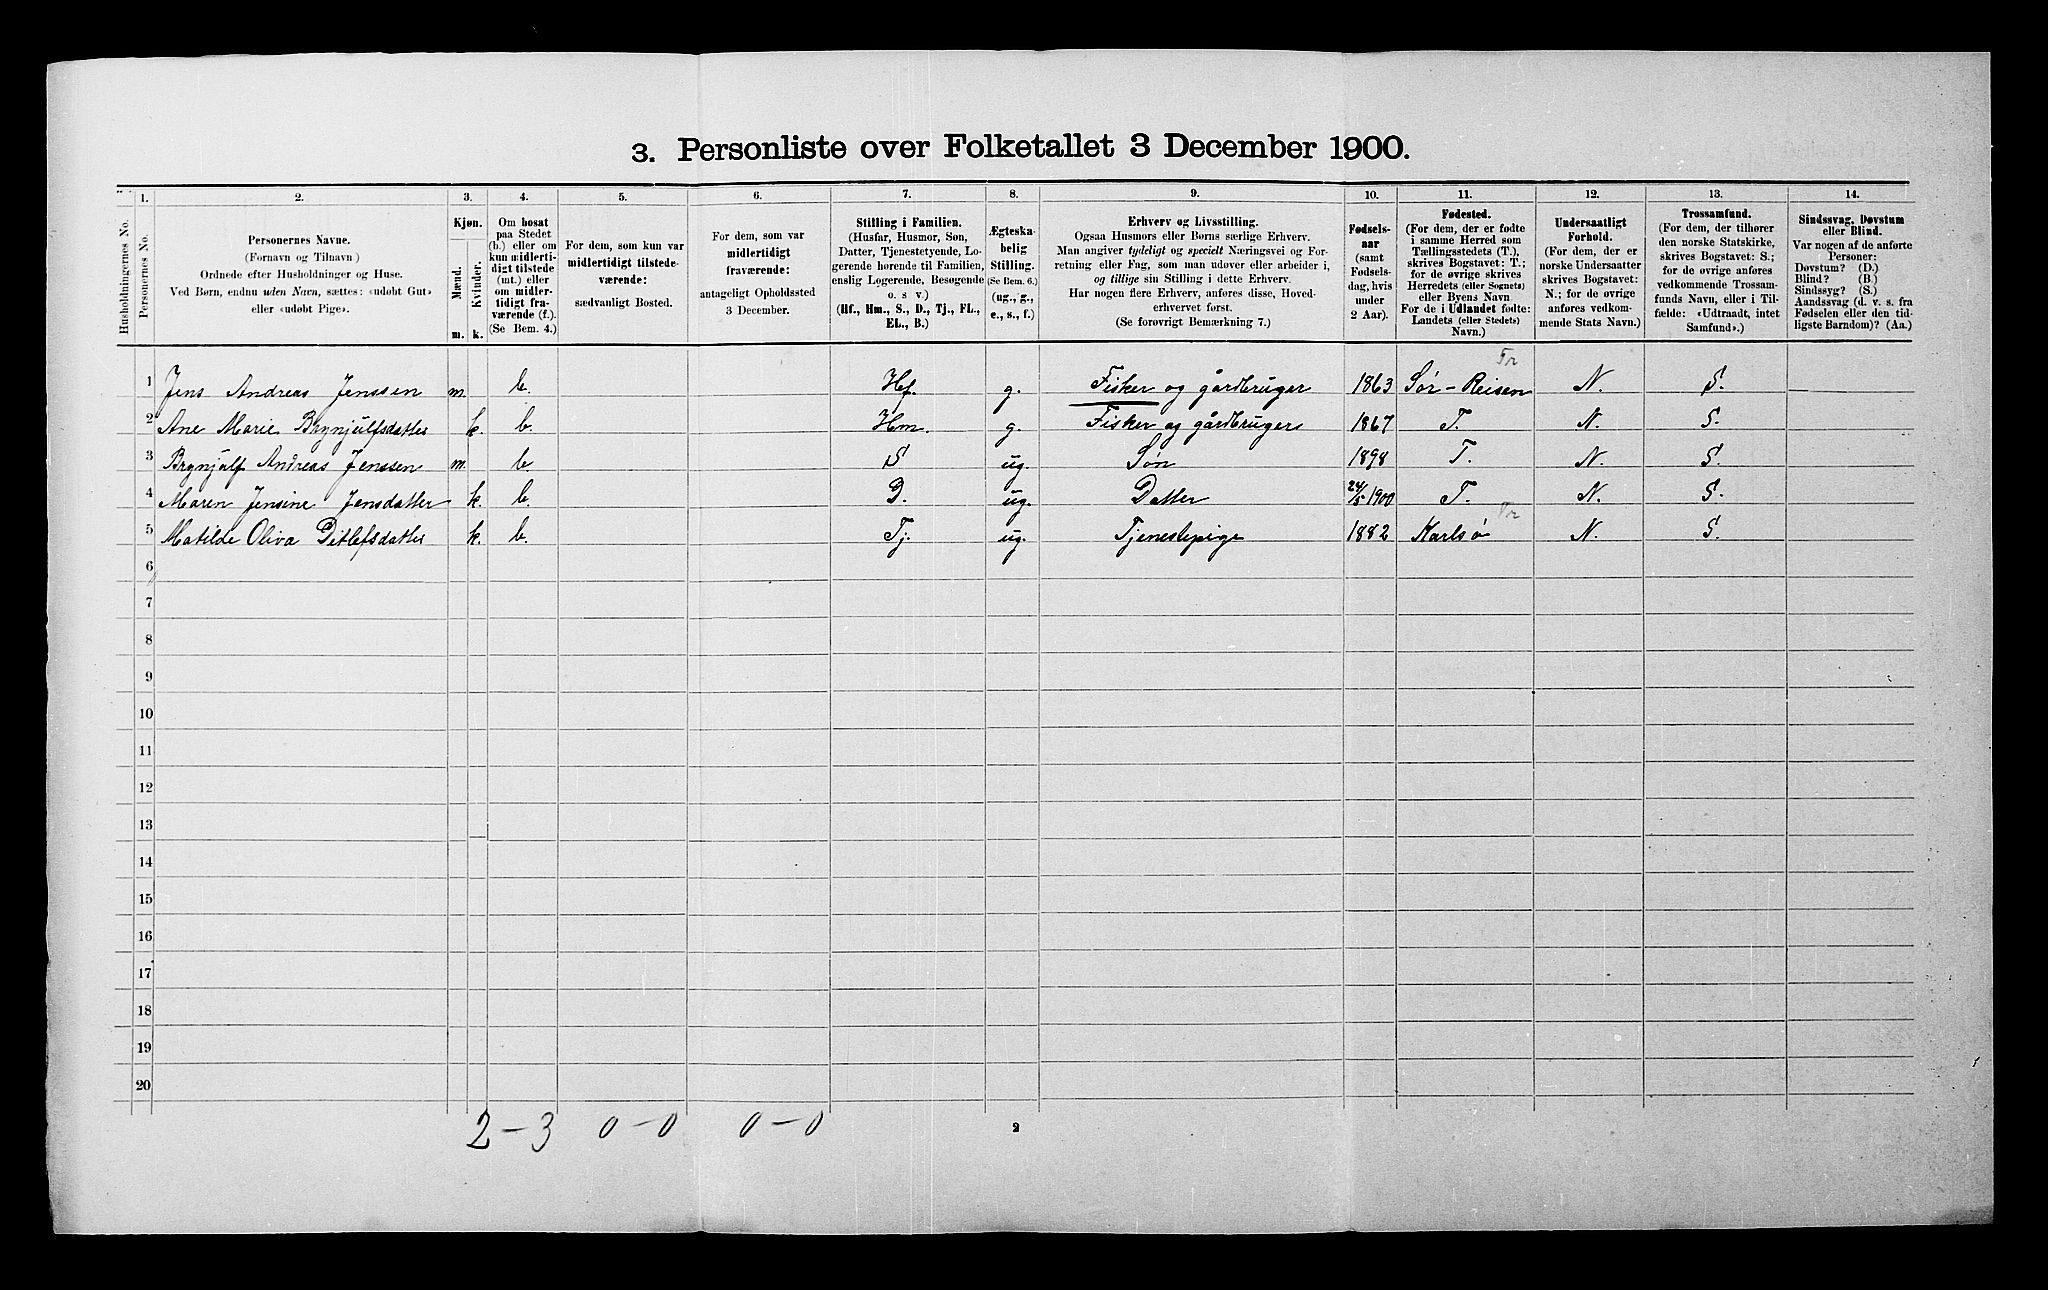 3. Personliste over Folketallet 3 December 1900.
1. 2. 3. 4. 5. 6. 7. 8. 9. 10. 11. 12. 13. 14.
Husholdningernes No.
Personernes No.
Personernes Navne.
(Fornavn og Tilnavn)
Ordnede efter Husholdninger og Huse.
Ved Børn, endnu uden Navn, sættes: «udøbt Gut»
eller «udøbt Pige».
Kjøn.
Mænd. Kvinder.
m. k.
Om bosat
paa Stedet
(b.) eller om
kun midlerti-
digt tilstede
(mt.) eller
om midler-
tidigt fra-
værende (f.).
(Se Bem. 4.)
For dem, som kun var
midlertidigt tilstede-
værende:
sædvanligt Bosted.
For dem, som var
midlertidigt
fraværende:
antageligt Opholdssted
3 December.
Stilling i Familien.
(Husfar, Husmor, Søn,
Datter, Tjenestetyende, Lo-
gerende hørende til Familien,
enslig Logerende, Besøgende
o. s v.)
(Hf., Hm., S., D., Tj., FL.,
EL., B.)
Ægteska-
belig
Stilling.
(Se Bem. 6.)
(ug., g.,
e., s., f.)
Erhverv og Livsstilling.
Ogsaa Husmors eller Børns særlige Erhverv.
Man angiver tydeligt og specielt Næringsvei og For-
retning eller Fag, som man udøver eller arbeider i,
og tillige sin Stilling i dette Erhverv.
Har nogen flere Erhverv, anføres disse, Hoved-
erhvervet først.
(Se forøvrigt Bemærkning 7.)
Fødsels-
aar
(samt
Fødsels-
dag, hvis
under
2 Aar).
Fødested.
(For dem, der er fødte
i samme Herred som
Tællingsstedets (T.),
skrives Bogstavet: T.;
for de øvrige skrives
Herredets (eller Sognets)
eller Byens Navn
For de i Udlandet fødte:
Landets (eller Stedets)
Navn.)
Undersaatligt
Forhold.
(For dem, der er
norske Undersaatter
skrives Bogstavet:
N.; for de øvrige
anføres vedkom-
mende Stats Navn.)
Trossamfund.
(For dem, der tilhører
den norske Statskirke,
skrives Bogstavet: S.;
for de øvrige anføres
vedkommende Trossam-
funds Navn, eller i Til-
fælde: «Udtraadt, intet
Samfund».)
Sindssvag, Døvstum
eller Blind.
Var nogen af de anførte
Personer:
Døvstum? (D.)
Blind? (B.)
Sindssyg? (S.)
Aandssvag (d. v. s. fra
Fødselen eller den tid-
ligste Barndom)? (Aa.)
Tr
1 Jens Andreas Jenssen m. b. Hf. g. Fisker og gårdbruger 1863 Sør-Reisen N. S.
2 Ane Marie Brynjulfsdatter k. b. Hm. g. Fisker og gårdbrugers 1867 T. N. S.
3 Brynjulf Andreas Jenssen m. b. S ug. Søn 1898 T. N. S.
4 Maren Jensine Jensdatter k. b. D. ug. Datter 24/5 1900 T. N. S.
Tr
5 Matilde Oliva Ditlefsdatter k. b. Tj. ug. Tjenestepige 1882 Karlsø N. S.
6
7
8
9
10
11
12
13
14
15
16
17
18
19
20
2 - 3 0 - 0 0 - 0 2